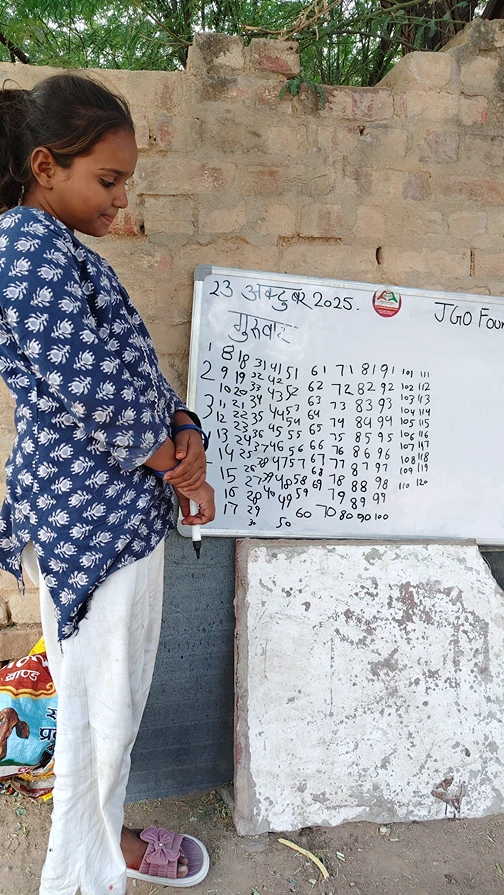 23 अक्टुबर 2025. JGO Foun
गुरुवार
1 8 18 31 41 51 61 71 81 91 101 111
2 9 19 32 42 52 62 72 82 92 102 112
10 20 33 43 53 63 73 83 93 103 113
3 11 21 34 44 54 64 74 84 94 104 114
12 22 35 45 55 65 75 85 95 105 115
13 23 36 46 56 66 76 86 96 106 116
14 24 37 47 57 67 77 87 97 107 117
15 25 38 48 58 68 78 88 98 108 118
16 26 39 49 59 69 79 89 99 109 119
17 27 40 50 60 70 80 90 100 110 120
28
29
30